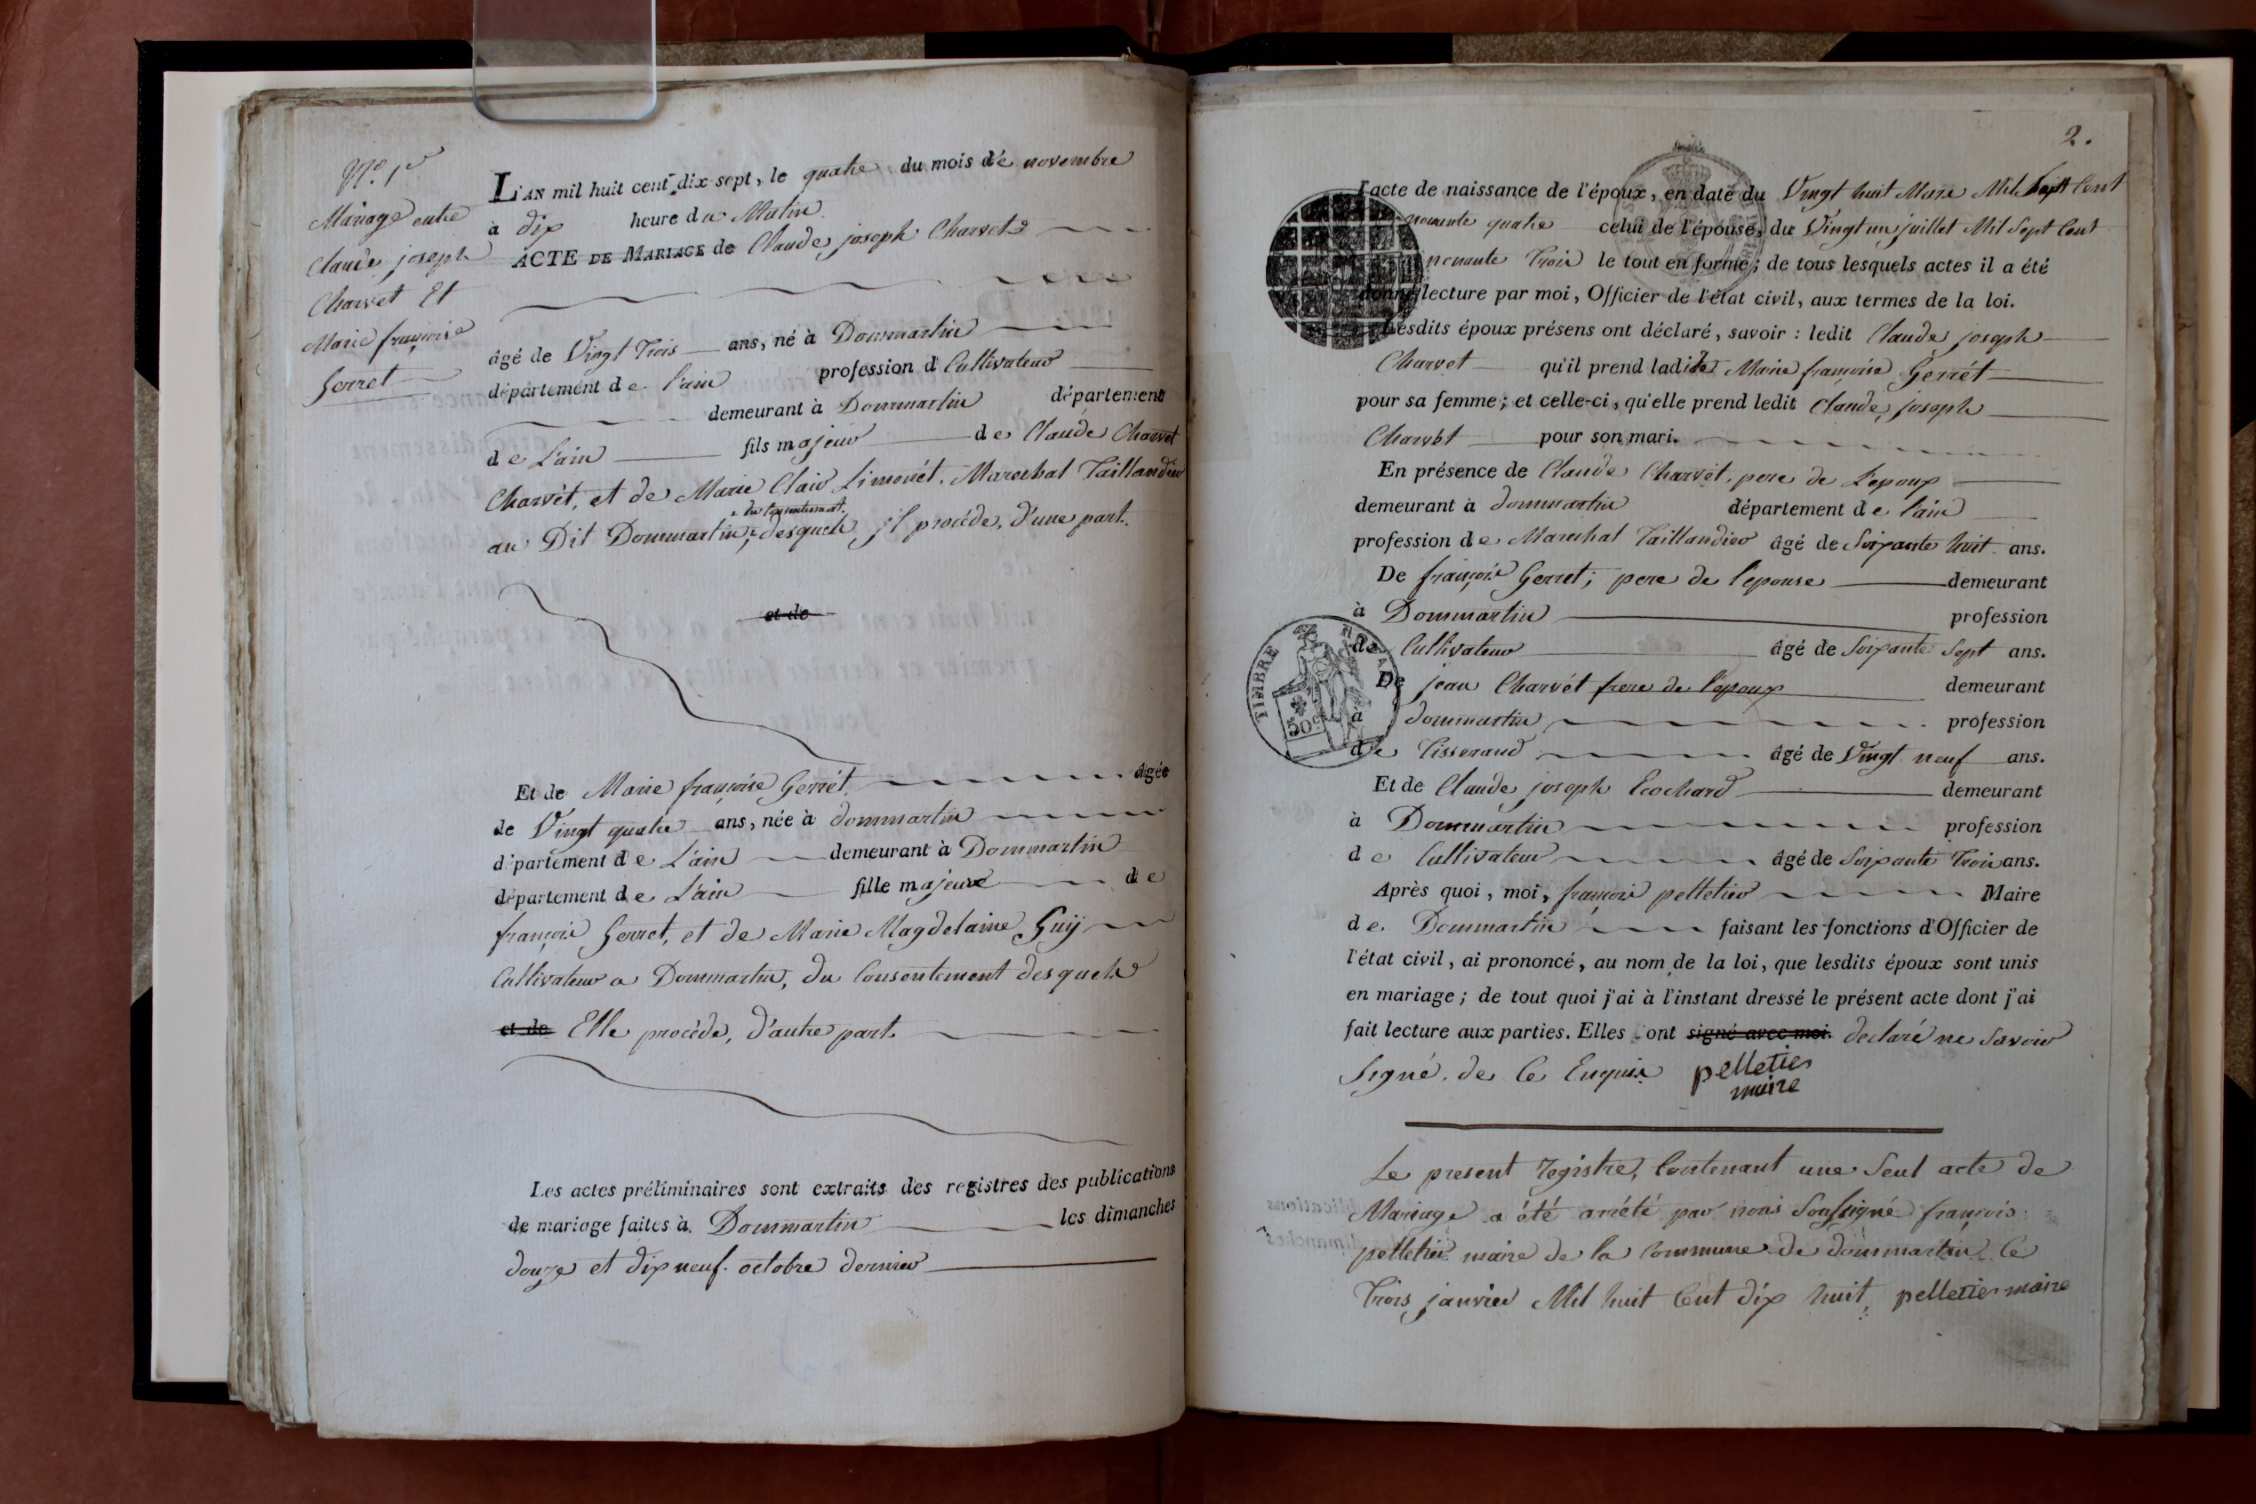 N.º 1er
Mariage entre
Claude joseph
Charvet Et
Marie françoise
Gerret
L'AN mil huit cent dix-sept, le quatre du mois de novembre
à dix heure du Matin
ACTE DE MARIAGE de Claude joseph Charvet
âgé de Vingt Trois ans, né à Dommartin
département de l'ain profession d Cultivateur
demeurant à Dommartin département
de L'ain fils majeur de Claude Charvet
Charvet, et de Marie Clair Limonét, Marechal Taillandier
du Consentement
au Dit Dommartin, desquels jl procéde, d'une part.
et de
Et de Marie françoise Gerrét âgée
de Vingt quatre ans, née à dommartin
département de L'ain demeurant à Dommartin
département de L'ain fille majeure de
françois Gerret, et de Marie Magdelaine Guÿ
Cultivateur a Dommartin, du Consentement desquels
et de Elle procède, d'autre part
Les actes préliminaires sont extraits des registres des publications
de mariage faites à Dommartin les dimanches
douze et dix neuf octobre dernier
2.
l'acte de naissance de l'époux, en date du Vingt huit Mars Mil Sept Cent
nonante quatre celui de l'épouse, du Vingt un juillet Mil Sept Cent
nonante Trois le tout en forme; de tous lesquels actes il a été
donné lecture par moi, Officier de l'état civil, aux termes de la loi.
Lesdits époux présens ont déclaré, savoir : ledit Claude joseph
Charvet qu'il prend ladite Marie françoise Gerrét
pour sa femme; et celle-ci, qu'elle prend ledit Claude joseph
Charvet pour son mari.
En présence de Claude Charvét, pere de L'epoux
demeurant à dommartin département de l'ain
profession de Marechal Taillandier âgé de Soixante huit ans.
De françois Gerret; pere de l'epouse demeurant
à Dommartin profession
de Cultivateur âgé de Soixante Sept ans.
De jean Charvét frere de l'epoux demeurant
TIMBRE ROYAL
50c
à dommartin profession
de Tisserand âgé de Vingt neuf ans.
Et de Claude joseph Ecochard demeurant
à Dommartin profession
de Cultivateur âgé de Soixante Trois ans.
Après quoi, moi, françois pelletier Maire
de Dommartin faisant les fonctions d'Officier de
l'état civil, ai prononcé, au nom de la loi, que lesdits époux sont unis
en mariage; de tout quoi j'ai à l'instant dressé le présent acte dont j'ai
fait lecture aux parties. Elles ont signé avec moi. declaré ne Savoir
Signé. de Ce Enquis pelletier
maire
Le present registre, Contenant une Seul acte de
Mariage a été arrété par nous Soussigné françois
pelletier maire de la Commune de dommartin Ce
Trois janvier Mil huit Cent dix huit, pelletier maire